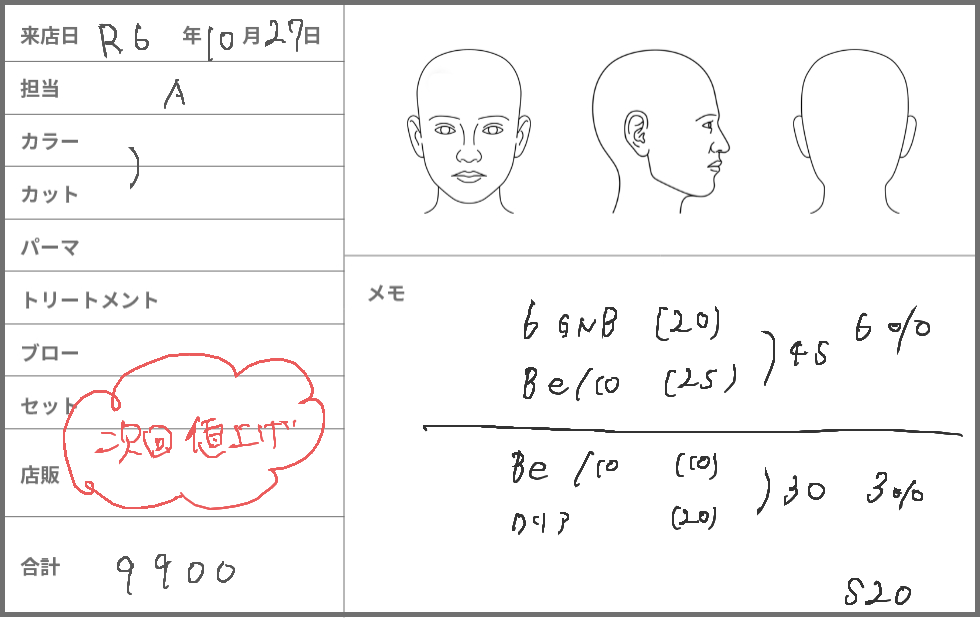 来店日 R6 年 10 月 27 日
担当 A
カラー
カット
パーマ
トリートメント
ブロー
セット
次回 値上げ
店販
合計 9900
メモ
6 GNB (20)
Be/10 (25) ) 45 6%
Be /10 (10)
クリア (20) ) 30 3%
S20